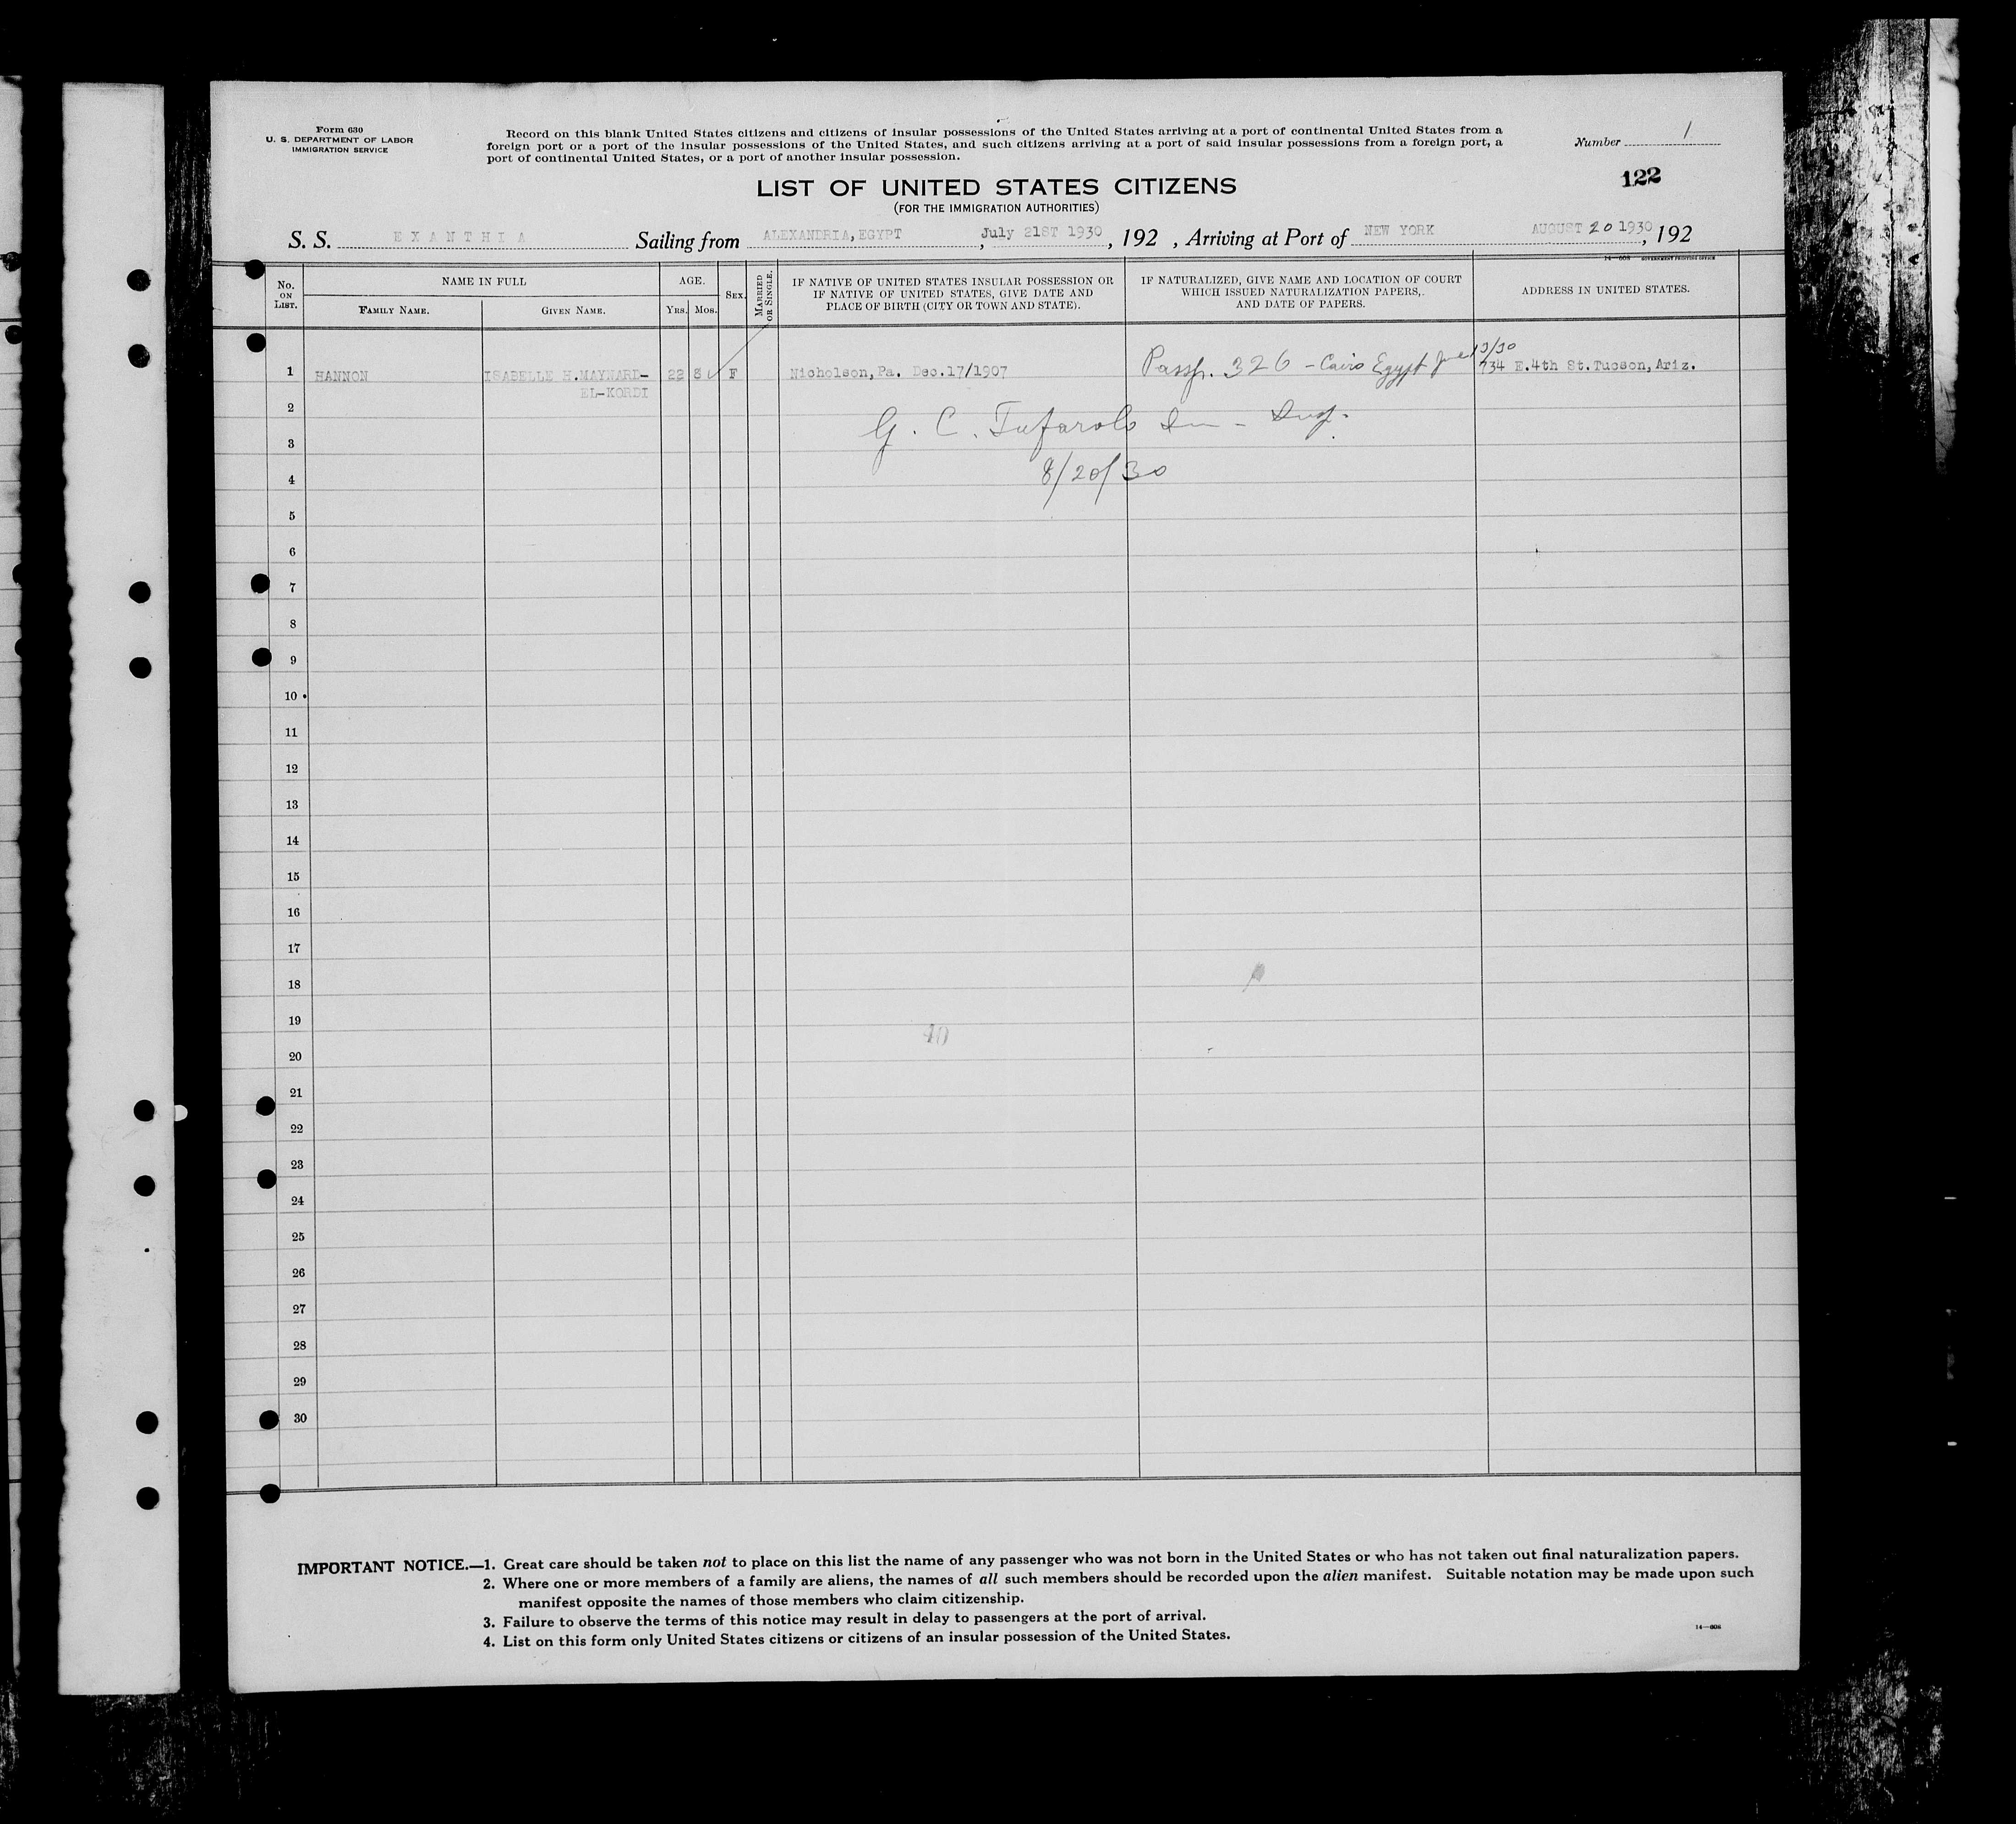 Form 630
U. S. DEPARTMENT OF LABOR
IMMIGRATION SERVICE
Record on this blank United States citizens and citizens of insular possessions of the United States arriving at a port of continental United States from a
foreign port or a port of the insular possessions of the United States, and such citizens arriving at a port of said insular possessions from a foreign port, a
port of continental United States, or a port of another insular possession.
Number 1
122
LIST OF UNITED STATES CITIZENS
(FOR THE IMMIGRATION AUTHORITIES)
S. S. EXANTHIA Sailing from ALEXANDRIA, EGYPT, July 21ST 1930, 192 , Arriving at Port of NEW YORK AUGUST 20 1930, 192
14—608 GOVERNMENT PRINTING OFFICE
No. ON LIST. NAME IN FULL AGE. SEX. MARRIED OR SINGLE. IF NATIVE OF UNITED STATES INSULAR POSSESSION OR IF NATIVE OF UNITED STATES, GIVE DATE AND PLACE OF BIRTH (CITY OR TOWN AND STATE). IF NATURALIZED, GIVE NAME AND LOCATION OF COURT WHICH ISSUED NATURALIZATION PAPERS, AND DATE OF PAPERS. ADDRESS IN UNITED STATES.
FAMILY NAME. GIVEN NAME. YRS. MOS.
1 HANNON ISABELLE H.MAYNARD- 22 8 F Nicholson, Pa. Dec.17/1907 Passp. 326 - Cairo Egypt June 13/30 734 E.4th St. Tucson, Ariz.
EL-KORDI
2
G. C. Tufarolo Im - Insp.
3
8/20/30
4
5
6
7
8
9
10
11
12
13
14
15
16
17
18
19
40
20
21
22
23
24
25
26
27
28
29
30
IMPORTANT NOTICE.—1. Great care should be taken not to place on this list the name of any passenger who was not born in the United States or who has not taken out final naturalization papers.
2. Where one or more members of a family are aliens, the names of all such members should be recorded upon the alien manifest. Suitable notation may be made upon such
manifest opposite the names of those members who claim citizenship.
3. Failure to observe the terms of this notice may result in delay to passengers at the port of arrival.
4. List on this form only United States citizens or citizens of an insular possession of the United States.
14—608